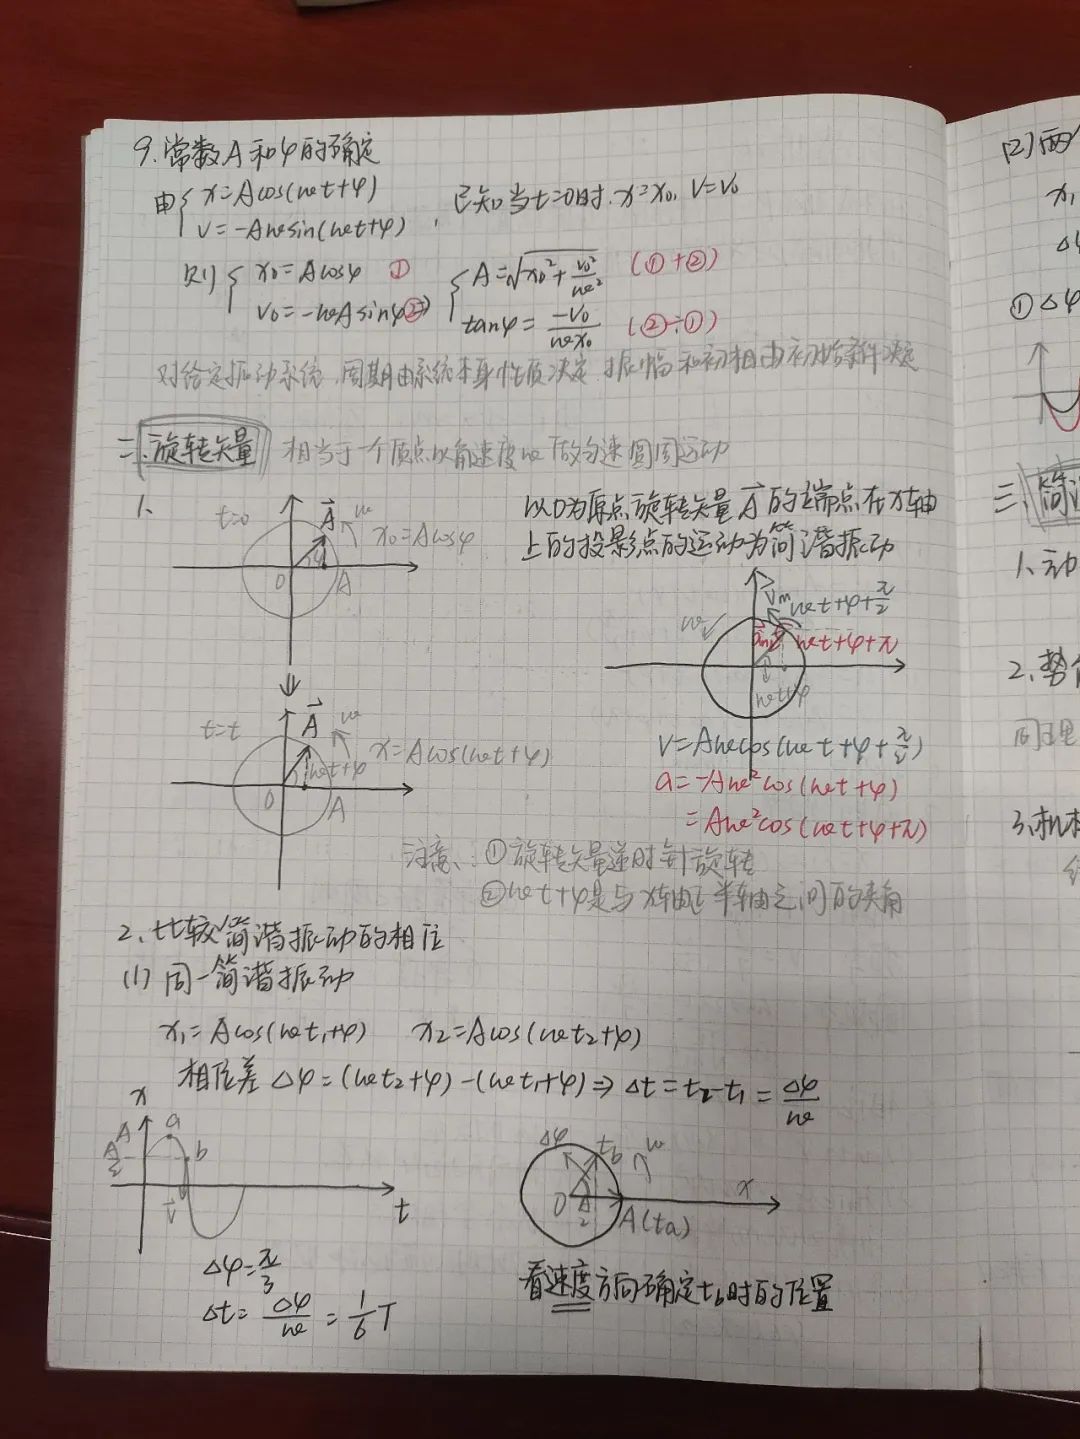 9.常数A和φ的确定
由{x=Acos(ωt+φ)
v=-Aωsin(ωt+φ), 已知当t=0时.x=x₀, v=v₀
则{x₀=Acosφ ①
v₀=-ωAsinφ② ⇒ {A=√(x₀²+v₀²/ω²) (①+②)
tanφ=-v₀/ωx₀ (②÷①)
对给定振动系统,周期由系统本身性质决定.振幅和初相由初始条件决定
二.旋转矢量 相当于一个质点以角速度ω做匀速圆周运动
1、
t=0 A ω x₀=Acosφ
φ
O A
以O为原点旋转矢量A的端点在x轴
上的投影点的运动为简谐振动
vm ωt+φ+π/2
ω ωt+φ+π
ωt+φ
t=t A ω x=Acos(ωt+φ)
ωt+φ
O A
v=Aωcos(ωt+φ+π/2)
a=-Aω²cos(ωt+φ)
=Aω²cos(ωt+φ+π)
注意:①旋转矢量逆时针旋转
②ωt+φ是与x轴正半轴之间的夹角
2、比较简谐振动的相位
(1)同一简谐振动
x₁=Acos(ωt₁+φ) x₂=Acos(ωt₂+φ)
相位差Δφ=(ωt₂+φ)-(ωt₁+φ)⇒Δt=t₂-t₁=Δφ/ω
x
A a
A/2 b
v t
Δφ tb ω
O A/2 x
A(ta)
Δφ=π/3
Δt=Δφ/ω=1/6T
看速度方向确定tb时的位置
(2)两
x₁
Δ
①Δφ
三、简
1、动
2、势
同理
3、机